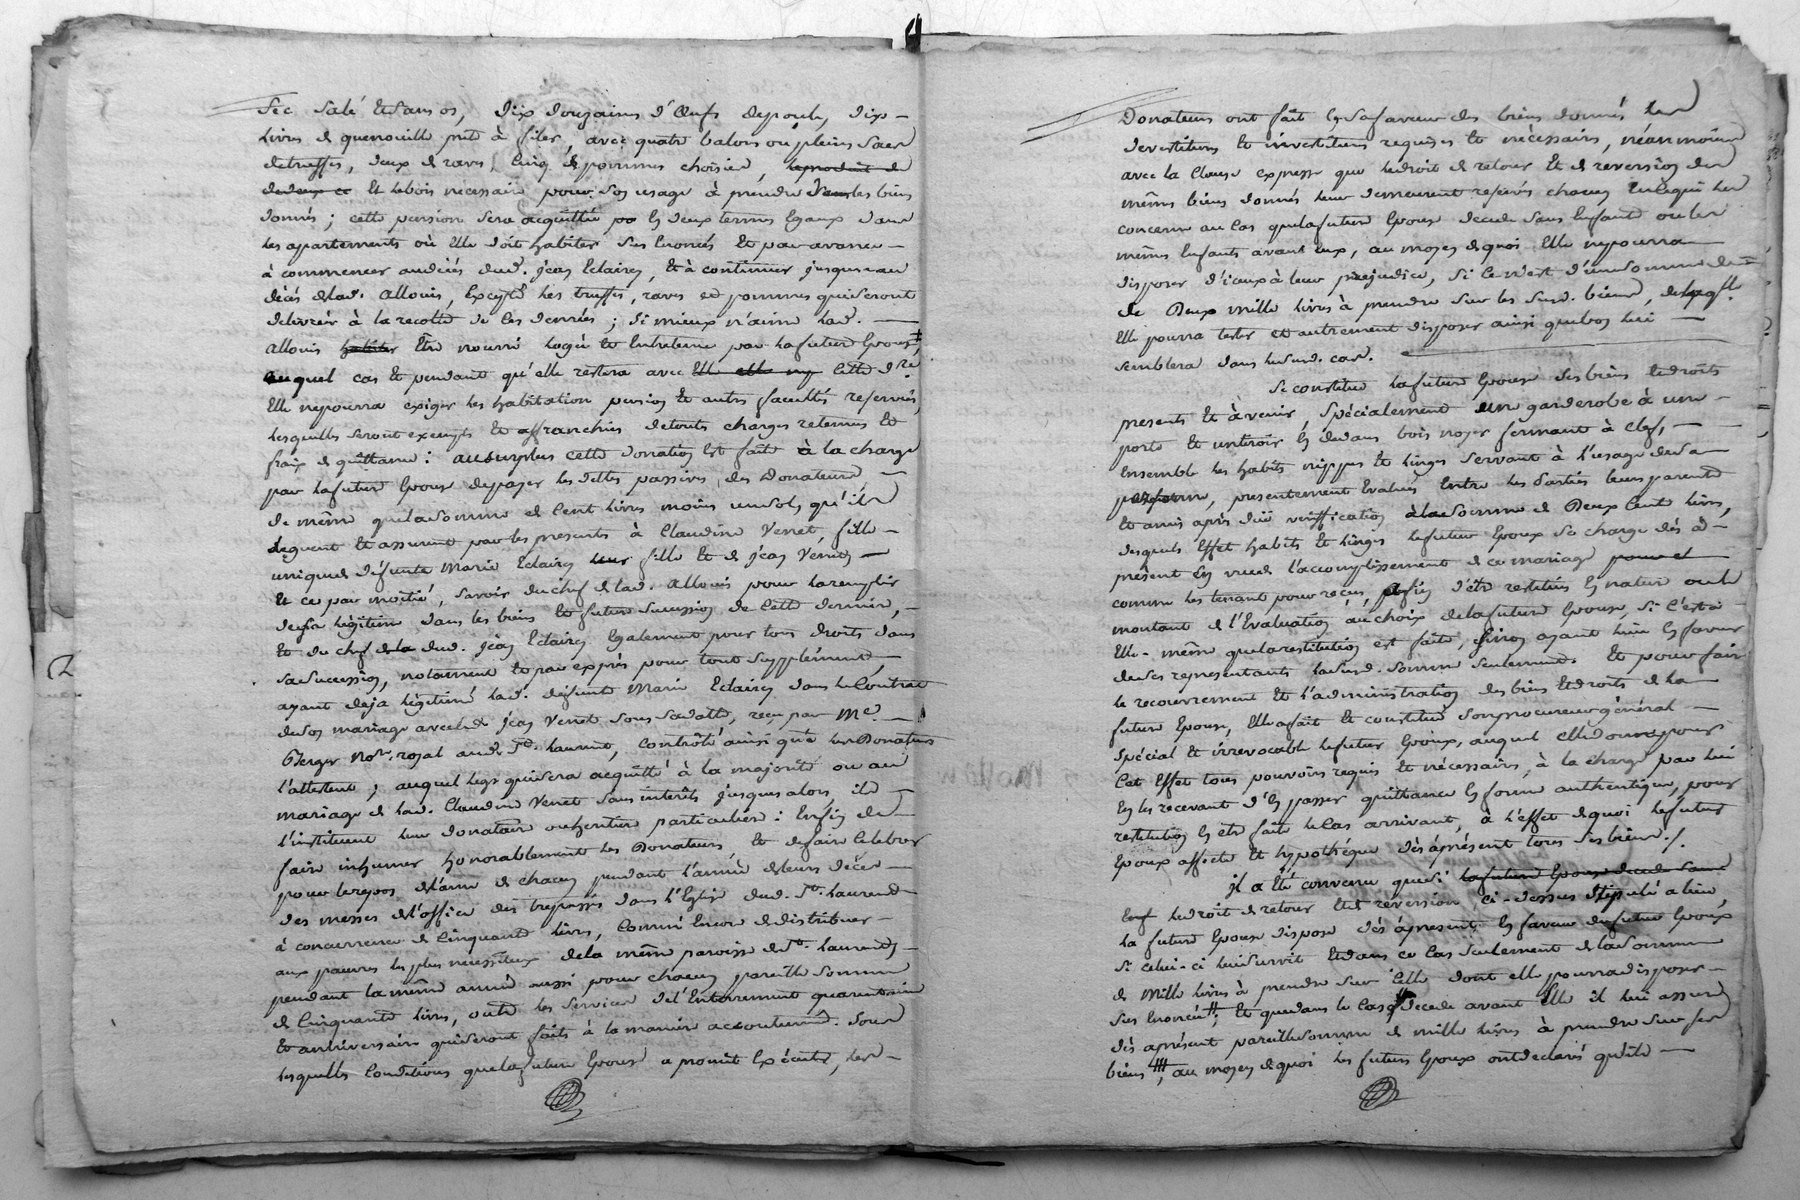 Sec salé et sans os, dix douzaines d'Œufs de poule, dix
livres de quenouille prit à filer, avec quatre balons ou pleins sacs
de truffes, deux de raves, cinq de pommes choisies, le produit de
et le bois nécessaire pour son usage à prendre dans les biens
donnés ; cette pension sera acquittée en deux termes Egaux dans
les apartements où Elle doit habiter sus énoncés et par avance
à commencer au décés dud. jean Eclairey, et à continuer jusques au
décés de lad. allouis, Excepté les truffes, raves et pommes qui seront
delivrées à la recolte de ces denrées ; si mieux n'aime lad.
allouis habiter Etre nourrie logée et Entretenue par la future Epouse,
auquel cas et pendant qu'elle restera avec cette d.re
Elle ne pourra exiger les habitation pension et autres facultés reservées,
lesquelles seront exempts et affranchies de toutes charges retenues et
fraix de quittance : au surplus cette donation est faite à la charge
par la future Epouse de payer les dettes passives des Donateurs
de même que la somme de Cent livres moins un sol, qu'ils
leguent et assurent par les presentes à Claudine Verret, fille
unique de defunte Marie Eclairey leur fille et de jean Verret
et ce par moitié, savoir du chef de lad. allouis pour la remplir
de sa légitime dans les biens et future succession de cette derniere,
et du chef de la dud. jean Eclairey Egalement pour tous droits dans
sa succession, notament et par exprès pour tout supplément,
ayant deja légitimé lad. defunte Marie Eclairey dans le Contrat
de son mariage avec led. jean Verret sous sa datte, reçu par Me.
Berger No.re royal aud. St. laurent, contrôlé ainsi que les Donateurs
l'attestent ; auquel legs qui sera acquitté à la majorité ou au
mariage de lad. Claudine Verret sans intérêts jusques alors ils
l'instituent leur donataire ou heritiere particuliere : Enfin de
faire inhumer honorablement les Donateurs, et de faire Celebrer
pour le repos de l'ame de chacun pendant l'année de leurs décès
des messes de l'office des trepassés dans l'Eglise dud. St. laurent
à concurrence de Cinquante livres, comme Encore de distribuer
aux pauvres les plus necessiteux de la même paroisse de St. laurent
pendant la même année aussi pour chacun pareille somme
de Cinquante livres, outre les services de l'Enterrement quarantaine
et anniversaire qui seront faits à la maniere accoutumée. Sous
lesquelles Conditions que la future Epouse a promit Executer, les
Donateurs ont fait En sa faveur des biens donnés les
devestitures et investitures requises et nécessaires, néanmoins
avec la Clause expresse que le droit de retour et de reversion des
mêmes biens donnés leur demeurent reservés chacun En ce qui les
concerne au Cas que la future Epouse decede sans Enfants ou les
mêmes Enfants avant Eux, au moyen de quoi Elle ne pourra
disposer d'iceux à leur prejudice, si ce n'est d'une somme de
de Deux mille livres à prendre sur les susd. biens, de laqle.
Elle pourra tester et autrement disposer ainsi que bon lui
semblera dans lesusd. cas.
Se constitue la future Epouse ses biens et droits
presents et à venir, spécialement une garderobe à une
porte et un tiroir En dedans bois noyer fermant à clef,
Ensemble les habits nippes et linges servant à l'usage de sa
personne, presentement Evalués Entre les parties leurs parents
et amis après düe vérification à la somme de Deux Cent livres,
desquels Effet habits et linges le futur Epoux se charge dès à
présent En vue de l'accomplissement de ce mariage pour et
comme les tenant pour reçus, afin d'étre restitués En nature ou le
montant de l'Evaluation au choix de la future Epouse, si c'est à
Elle-même que la restitution est faite, sinon ayant lieu En faveur
de ses représentants la susd. somme seulement. Et pour faire
le recouvrement et l'administration des biens et droits de la
future Epouse, Elle a fait et constitué son procureur général
spécial et irrevocable le futur Epoux, auquel elle donne pour
Cet Effet tous pouvoirs requis et nécessaires, à la charge par lui
En les recevant d'En passer quittance En forme authentique, pour
restitution En étre faite le Cas arrivant, à l'effet de quoi le futur
Epoux affecte et hypothéque dès àprésent tous ses biens./.
il a été convenu que si la future Epouse decede sans
Sauf le droit de retour et de réversion ci-dessus stipulé a lieu,
la future Epouse dispose dès àpresent En faveur du futur Epoux
si celui-ci lui survit et dans ce Cas seulement de la somme
de mille livres à prendre sur celle dont elle pourra disposer
sus Enoncée ; et que dans le Cas decede avant Elle il lui assure
dès àprésent pareille somme de mille livres à prendre sur ses
biens, au moyen de quoi les futurs Epoux ont declarés qu'ils